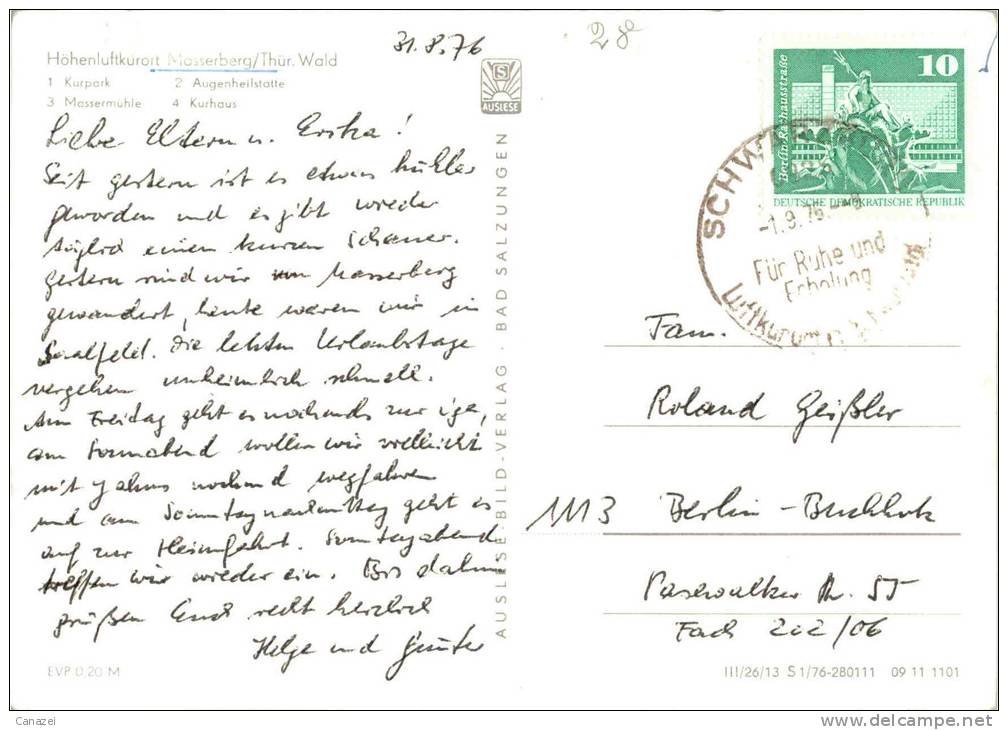 31.8.76
28
Höhenluftkurort Masserberg/Thür. Wald
1 Kurpark 2 Augenheilstätte
3 Massermühle 4 Kurhaus
S
AUSLESE
Liebe Eltern u. Erika!
Seit gestern ist es etwas kühler
geworden und es gibt wieder
täglich einen kurzen Schauer.
Gestern sind wir von Masserberg
gewandert, heute waren wir in
Saalfeld. Die letzten Urlaubstage
vergehen unheimlich schnell.
Am Freitag geht es nochmals zur
am Sonnabend wollen wir vielleicht
mit Jahns nochmal wegfahren
und am Sonntagnachmittag geht es
auf zur Heimfahrt. Sonntagabend
treffen wir wieder ein. Bis dahin
grüßen Euch recht herzlich
Helga und Günter
EVP 0,20 M
AUSLESE-BILD-VERLAG · BAD SALZUNGEN
10
Berlin, Rathausstraße
DEUTSCHE DEMOKRATISCHE REPUBLIK
-1.9.76
Für Ruhe und
Erholung
Luftkurort
Fam.
Roland Geißler
1113 Berlin-Buchholz
Pasewalker Str. 55
Fach 202/06
III/26/13 S 1/76-280111 09 11 1101
Canazei
www.delcampe.net